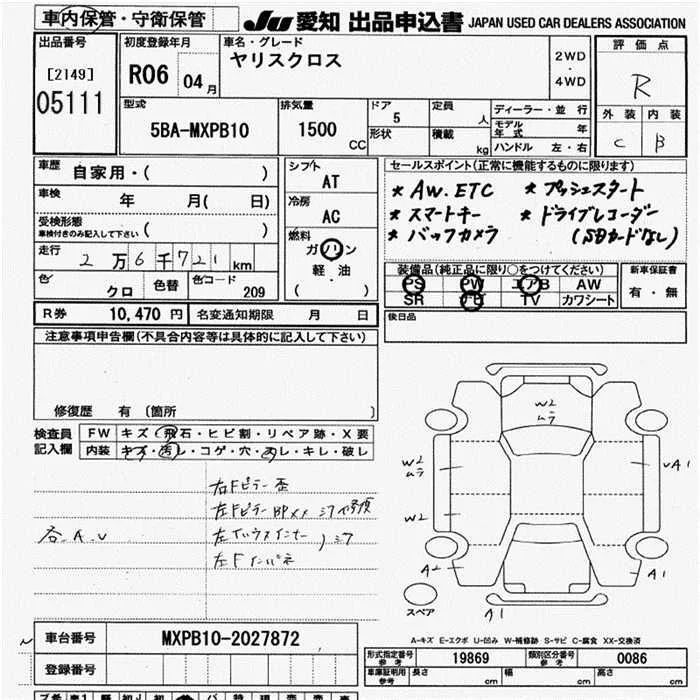 車内保管・守衛保管
JU 愛知 出品申込書 JAPAN USED CAR DEALERS ASSOCIATION
出品番号
[2149]
05111
初度登録年月
R06 04月
車名・グレード
ヤリスクロス
2WD
・
4WD
評価点
R
外装 内装
C B
型式
5BA-MXPB10
排気量
1500
CC
ドア
5
形状
定員
人
積載
kg
ディーラー・並行
モデル年式 年
ハンドル 左・右
車歴 自家用・( )
車検 年 月( 日)
受検形態
車検付きのみ記入して下さい ( )
走行 2万6千721km
色 クロ 色替 色コード 209
シフト
AT
冷房
AC
燃料
ガソリン
軽・油
( )
セールスポイント(正常に機能するものに限ります)
* AW. ETC * プッシュスタート
* スマートキー * ドライブレコーダー
* バックカメラ (SDカードなし)
装備品(純正品に限り○をつけてください)
PS PW エアB AW
SR ナビ TV カワシート
新車保証書
有・無
R券 10,470円 名変通知期限 月 日
後日品
注意事項申告欄(不具合内容等は具体的に記入して下さい)
修復歴 有 〔箇所 〕
検査員記入欄
FW キズ・飛石・ヒビ割・リペア跡・X要
内装 キズ・汚レ・コゲ・穴・スレ・キレ・破レ
右Fピラー歪
各.A.U
W2
ムラ
W2
ムラ
W2
A2
A1
UA1
A1
スペア
A-キズ E-エクボ U-凹み W-補修跡 S-サビ C-腐食 XX-交換済
車台番号 MXPB10-2027872
登録番号
形式指定番号
参考
19869
類別区分番号
参考
0086
車庫証明用
参考
長さ cm 幅 cm 高さ cm